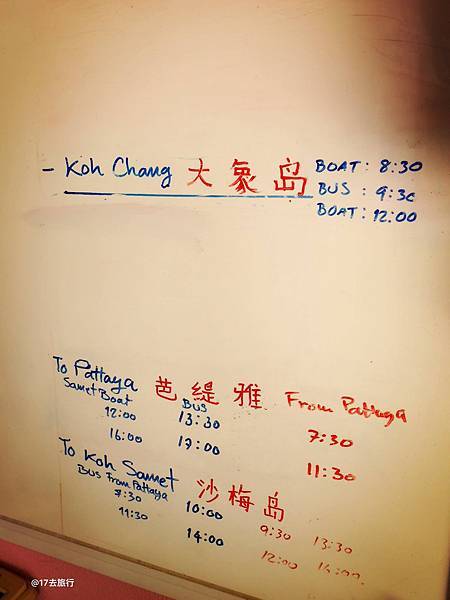 - Koh Chang 大象岛 BOAT: 8:30
BUS : 9:30
BOAT: 12:00
To Pattaya 芭缇雅 From Pattaya
Samet Boat BUS
12:00 13:30 7:30
16:00 17:00 11:30
To Koh Samet 沙梅岛
BUS From Pattaya
7:30 10:00 9:30 13:30
11:30 14:00 12:00 16:00
@17去旅行